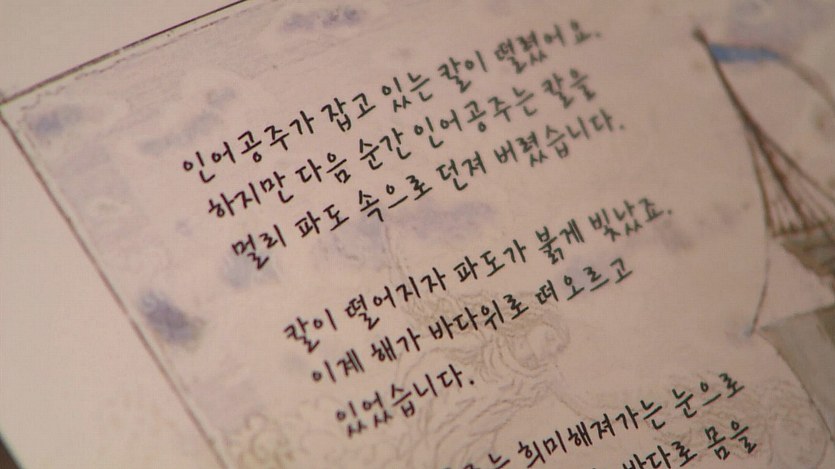 인어공주가 잡고 있는 칼이 떨렸어요.
하지만 다음 순간 인어공주는 칼을
멀리 파도 속으로 던져 버렸습니다.
칼이 떨어지자 파도가 붉게 빛났죠.
이제 해가 바다위로 떠오르고
있었습니다.
희미해져가는 눈으로
바다로 몸을